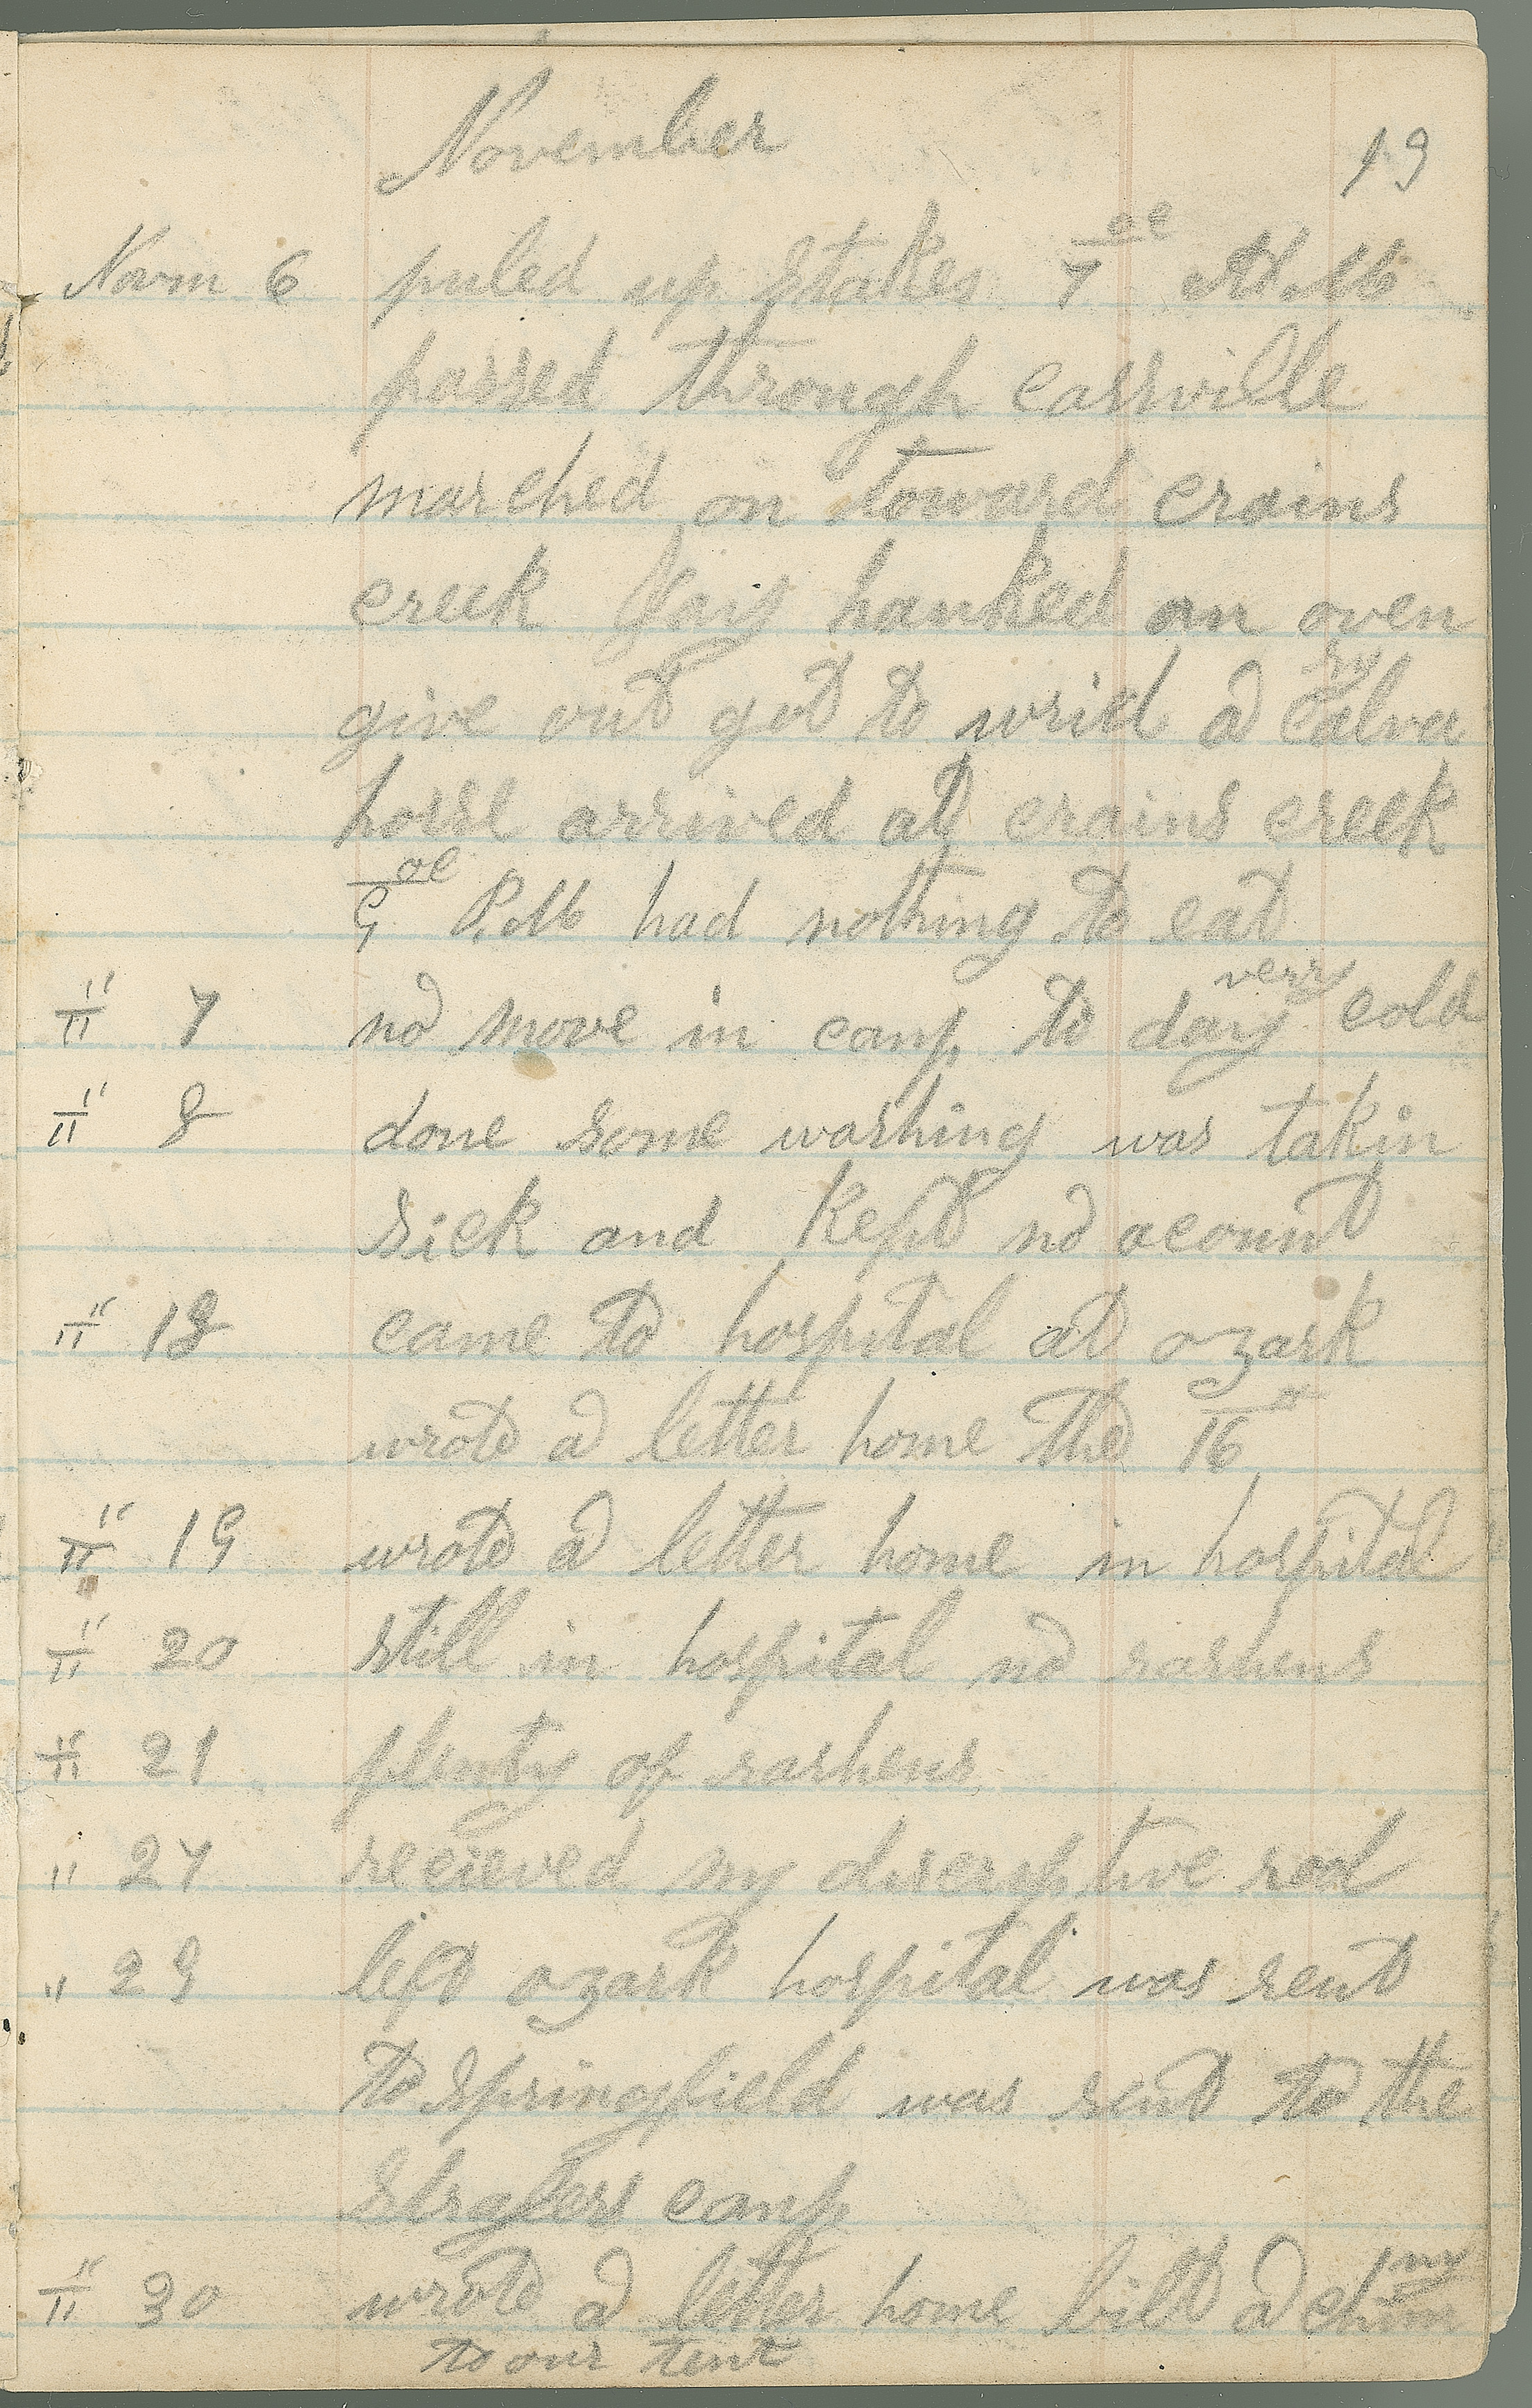 November
19
Novm 6 puled up stakes 7 oc A.M
passed through cassville
marched on toward crains
creek Gary hanked an oven
give out got to wrid a calvery
horse arrived at crains creek
9 oc P.M had nothing to eat
" 7 no move in camp to day verry cold
" 8 done some washing was takin
sick and Kept no acount
" 18 came to hospital at ozark
wrote a letter home the 16
" 19 wrote a letter home in hospital
" 20 still in hospital no rashens
" 21 plenty of rashens
" 27 recieved my discriptive rool
" 29 left ozark hospital was sent
to springfield was sent to the
camp
" 30 wrote a letter home bilt a chimny
to our tent